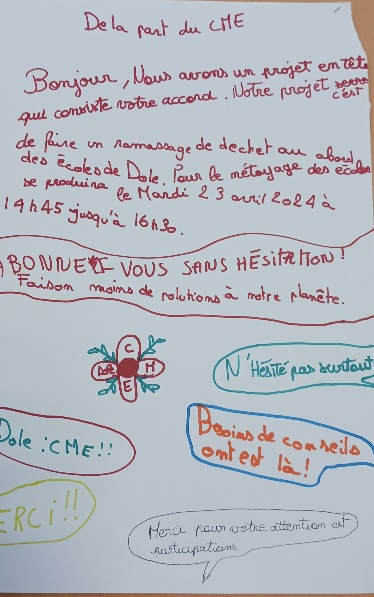 De la part du CME
Bonjour, Nous avons un projet en tête
qui consiste votre accord. Notre projet
c'est
de faire un ramassage de dechet au abord
des écoles de Dole. Pour le métoyage des écoles
se produira le Mardi 23 avril 2024 à
14h45 jusqu'à 16h30.
ABONNEZ VOUS SANS HÉSITATION!
Faison moins de polutions à notre planête.
C
Dole M
E
N'Hésité pas surtout
Dole : CME!!
Besoins de conseils
ont est là!
MERCI!!
Merci pour votre attention est
participations